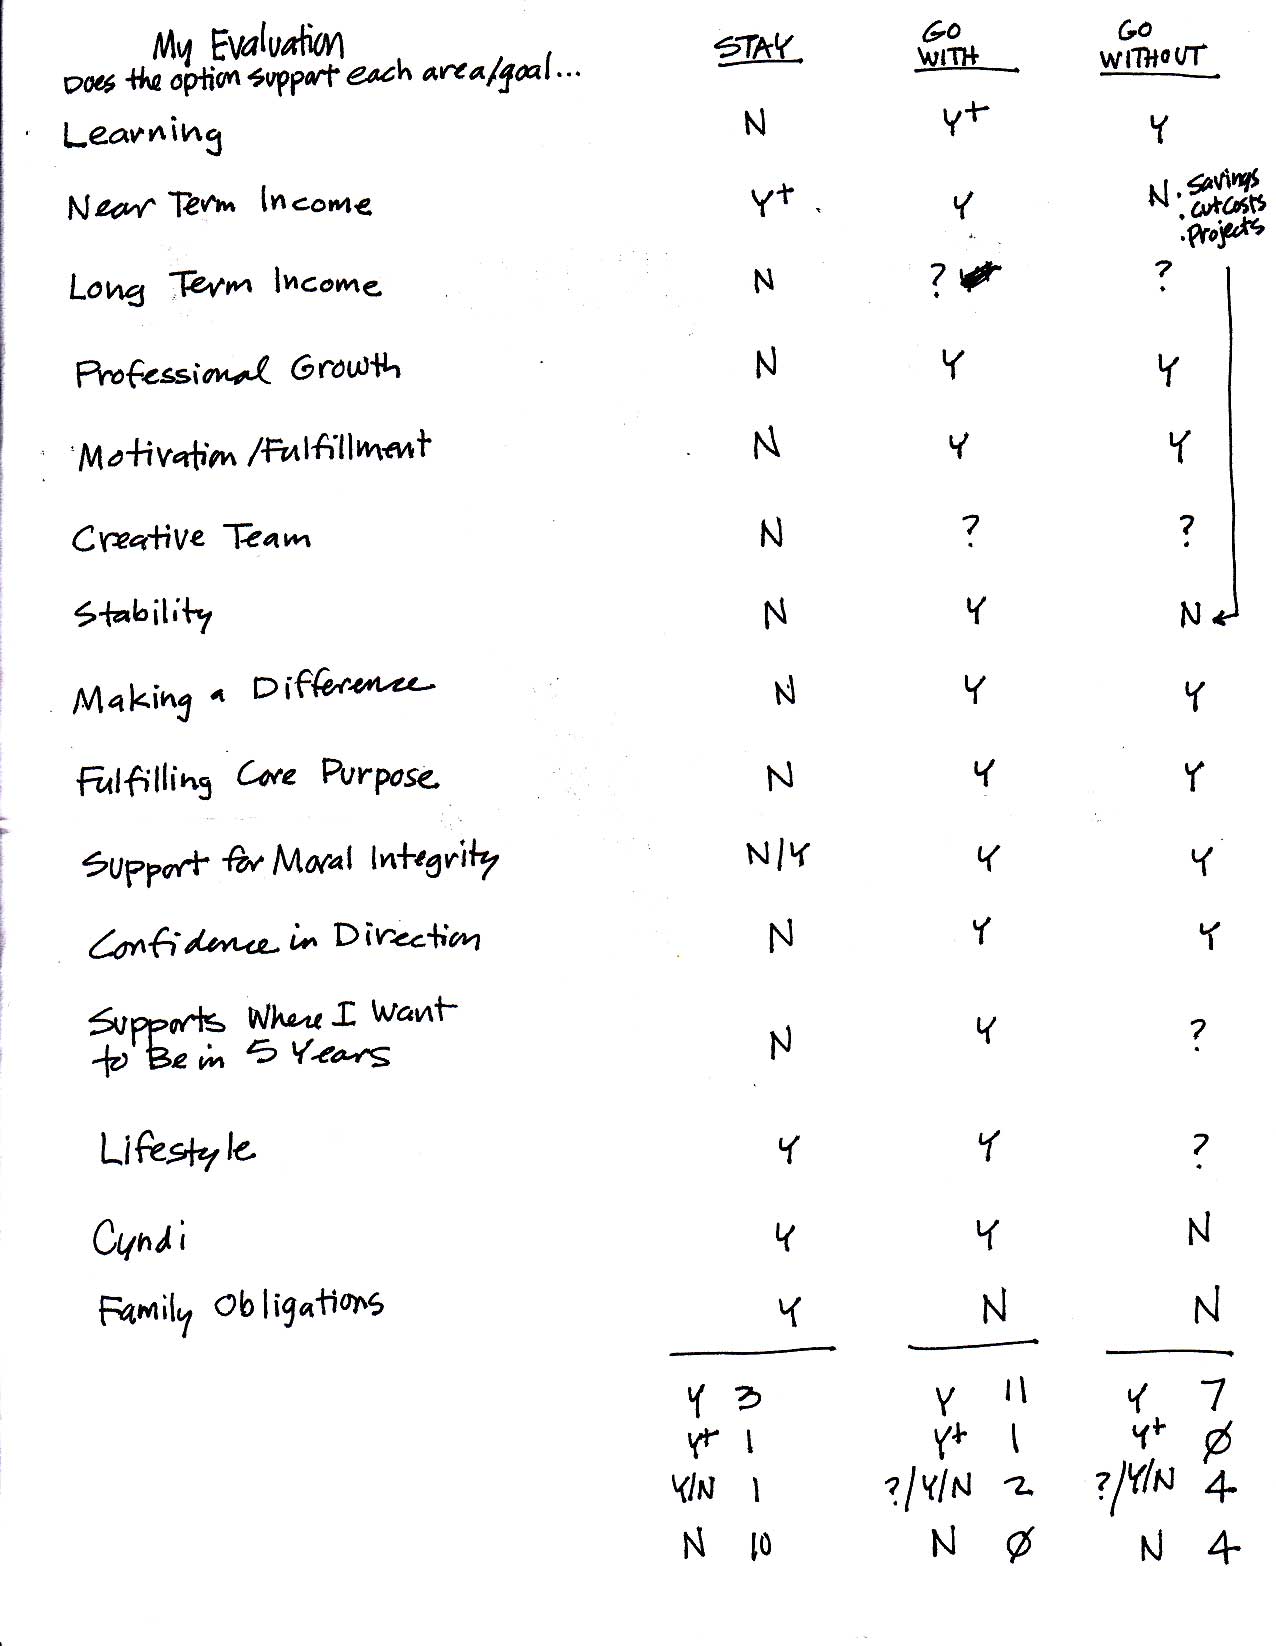 My Evaluation STAY GO WITH GO WITHOUT
Does the option support each area/goal...
Learning N Y+ Y
Near Term Income Y+ Y N • Savings • Cut Costs • Projects
Long Term Income N ? ?
Professional Growth N Y Y
Motivation/Fulfillment N Y Y
Creative Team N ? ?
Stability N Y N
Making a Difference N Y Y
Fulfilling Core Purpose N Y Y
Support for Moral Integrity N/Y Y Y
Confidence in Direction N Y Y
Supports Where I Want
to Be in 5 Years N Y ?
Lifestyle Y Y ?
Cyndi Y Y N
Family Obligations Y N N
Y 3 Y 11 Y 7
Y+ 1 Y+ 1 Y+ Ø
Y/N 1 ?/Y/N 2 ?/Y/N 4
N 10 N Ø N 4